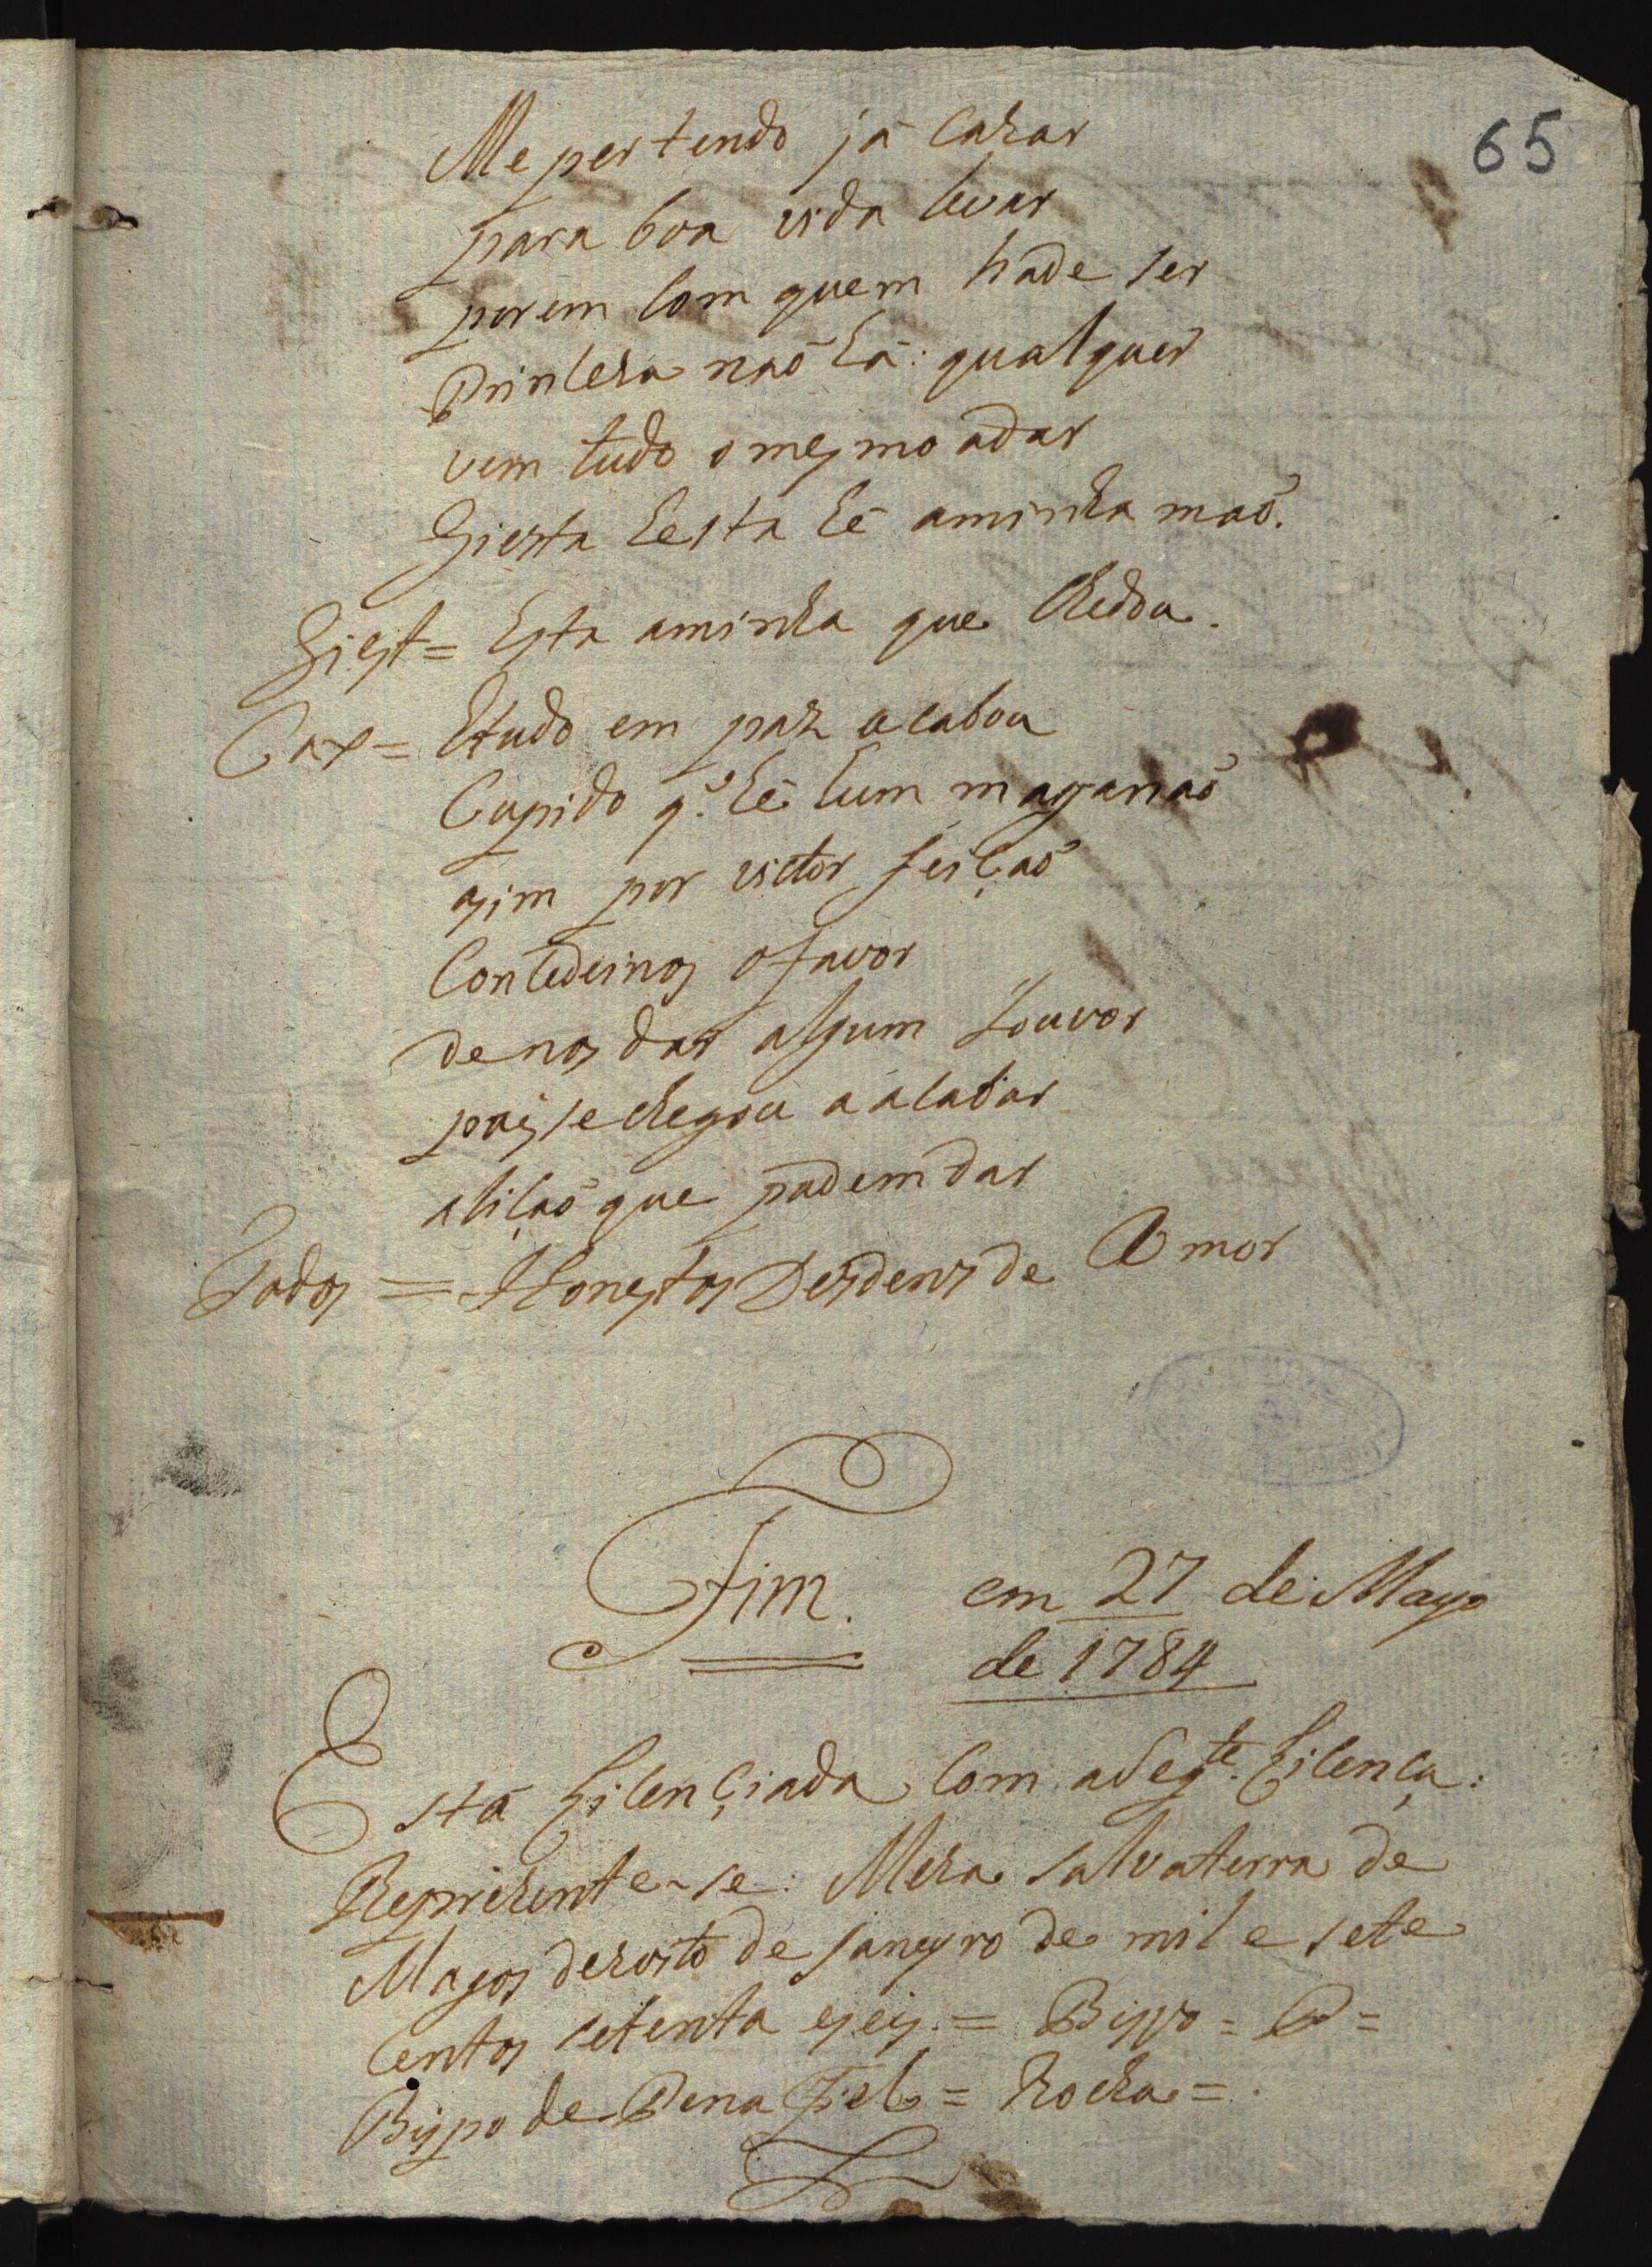 65
Me pertendo já cazar
para boa vida levar
porem com quem hade ser
Princeza naõ há: qualquer
vem tudo o mesmo adar
Giesta hesta hé aminha maõ.
Giest= Esta aminha que chedou.
Cax= Etudo em paz acabou
Cupido q.e hé hum maganaõ
asim por victor feiçaõ
Concedeinos ofavor
denos dar algum Louvor
pois se chegou a acabar
aliçaõ que podem dar
Todos = Honestos Desdens de Amor
Fim. em 27 de Mayo
de 1784
Está Licençiada Com aSeg.te Licença:
Reprezente-se: Meza Salvaterra de
Magos dezoito de janeyro de mil e sete
Centos setenta eseis. = Bispo = P =
Bispo de Pena Fiel = Rocha =.